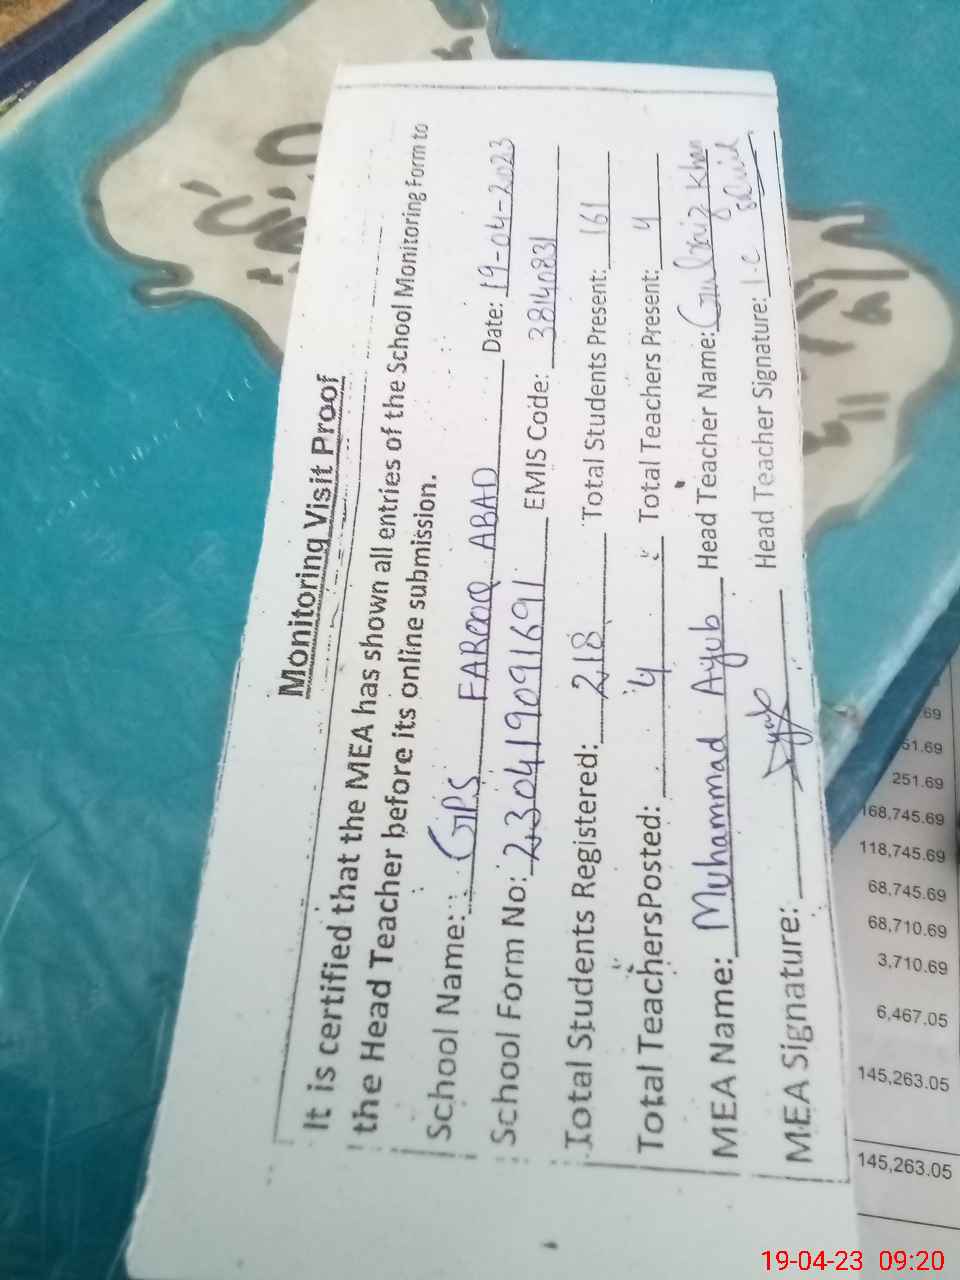 Monitoring Visit Proof
It is certified that the MEA has shown all entries of the School Monitoring Form to
the Head Teacher before its online submission.
School Name: GPS FAROOQ ABAD Date: 19-04-2023
School Form No: 230419091691 EMIS Code: 38140831
Total Students Registered: 218 Total Students Present: 161
Total TeachersPosted: 4 Total Teachers Present: 4
MEA Name: Muhammad Ayub Head Teacher Name: Gulraiz Khan
MEA Signature: Ayub Head Teacher Signature: I.C
51.69
251.69
168,745.69
118,745.69
68,745.69
68,710.69
3,710.69
6,467.05
145,263.05
145,263.05
19-04-23 09:20